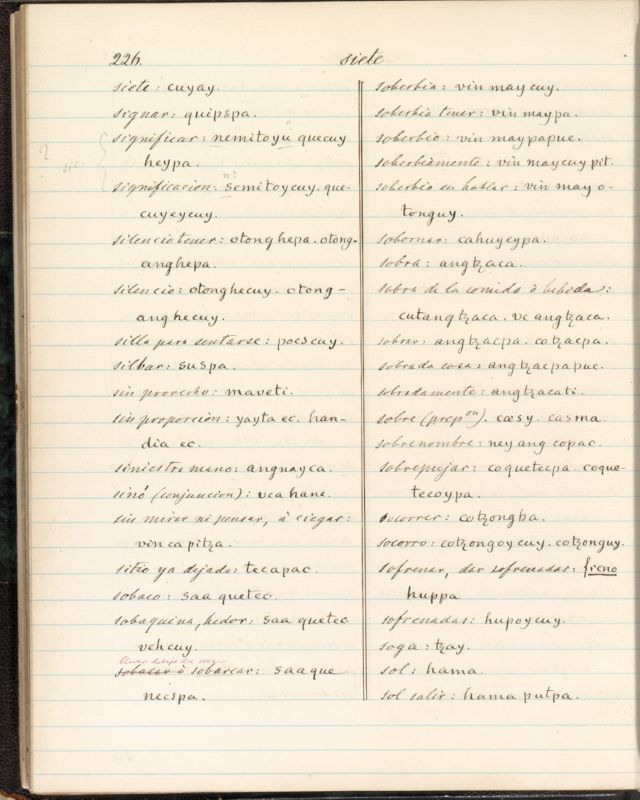 226.
siete
siete: cuyay.
signar: quipspa.
significar: nemitoyü quecuy
heypa.
? sic.
significacion: semitoycuy. que-
n?
cuyeycuy.
silencio tener: otonghepa. otong-
anghepa.
silencio: otonghecuy. otong-
anghecuy.
silla para sentarse: pocscuy.
silbar: suspa.
sin provecho: maveti.
sin proporcion: yayta ec. han-
dia ec.
siniestra mano: angnayca.
sinó (conjuncion): vca hane.
sin mirar ni pensar, à ciegas:
vin capitza.
sitio ya dejado: tecapac.
sobaco: saa quetec.
sobaquina, hedor: saa quetec
vehcuy.
sobacar ò sobarcar: saaque
necspa.
soberbia: vin may cuy.
soberbia tener: vin maypa.
soberbio: vin maypapue.
soberbiamente: vin maycuy pit.
soberbia en hablar: vin may o-
tonguy.
sobornar: cahuyeypa.
sobra: angtzaca.
sobra de la comida ò bebida:
cutangtzaca. vc angtzaca.
sobrar: angtzacpa. cotzacpa.
sobrada cosa: angtzacpapue.
sobradamente: angtzacati.
sobre (prepon). cæsy. casma.
sobrenombre: ney ang copac.
sobrepujar: coquetecpa. coque-
tecoypa.
socorrer: cotzongba.
socorro: cotzongoycuy. cotzonguy.
sofrenar, dar sofrenadas: freno
huppa
sofrenadas: hupoycuy.
soga: tzay.
sol: hama.
sol salir: hama putpa.